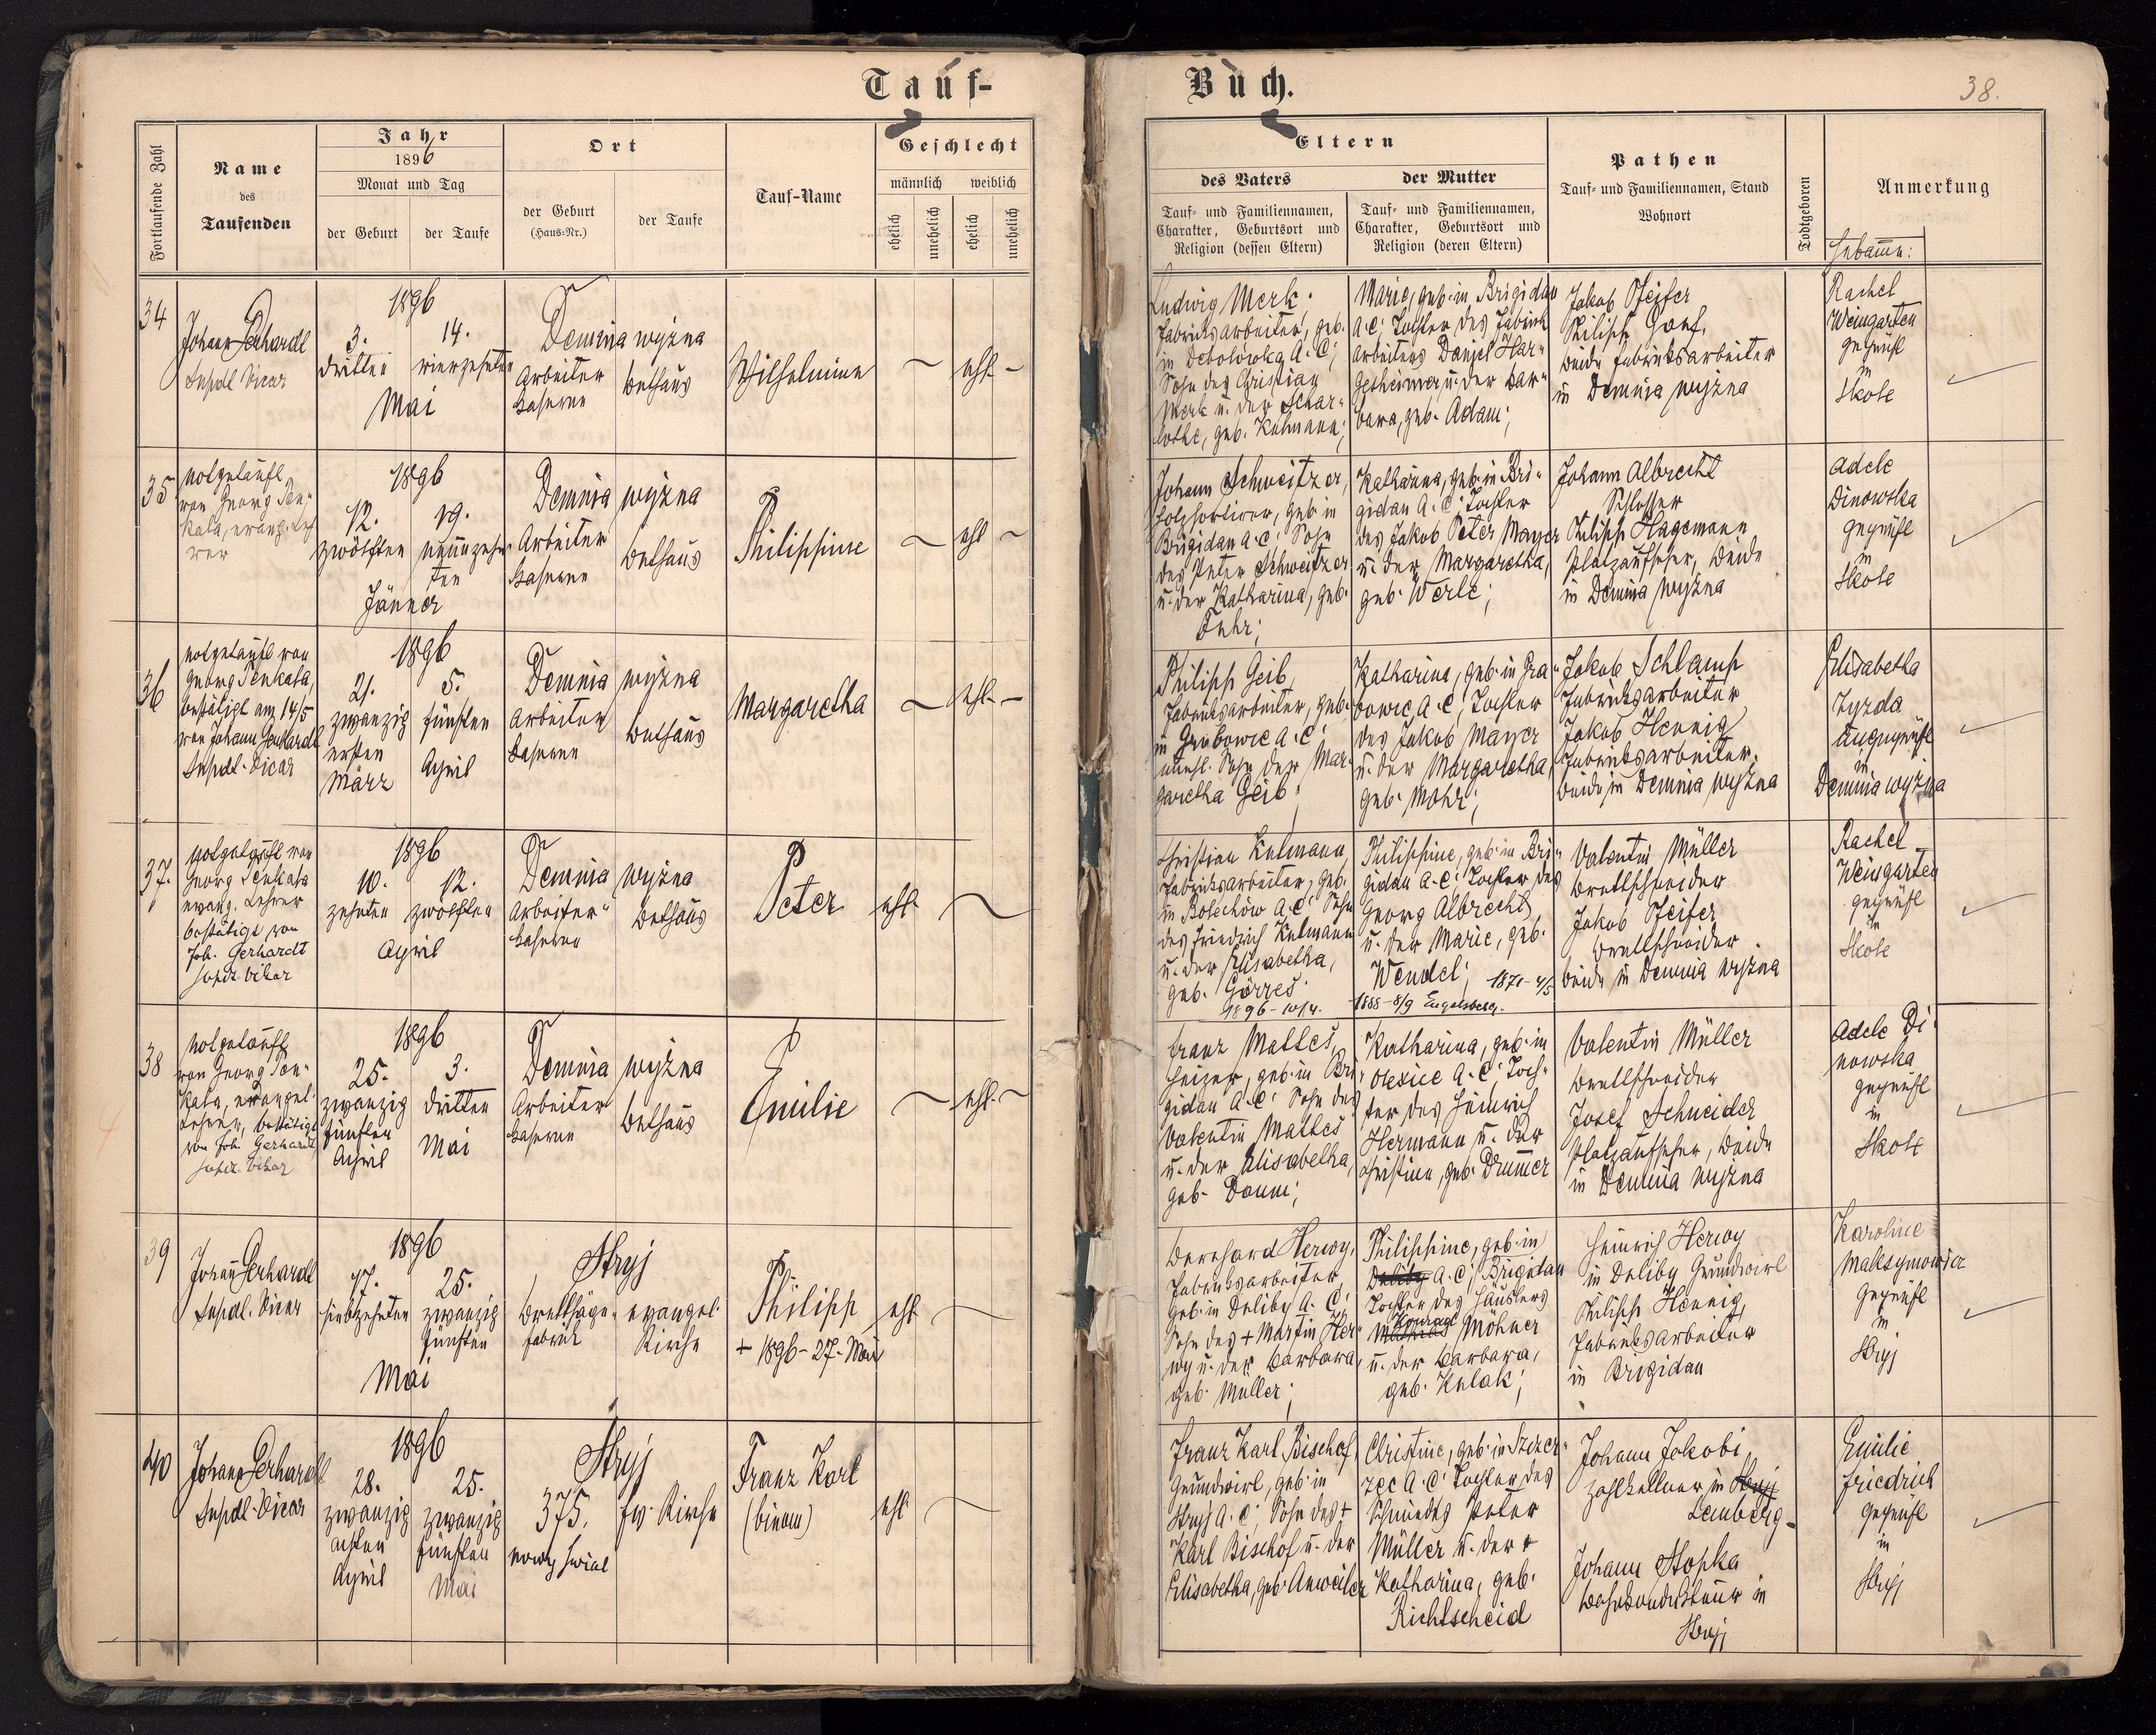 Tauf-
Buch.
38.
Fortlaufende Zahl
Name
des
Taufenden
Jahr
1896
Monat und Tag
der Geburt
der Taufe
Ort
der Geburt
(Haus-Nr.)
der Taufe
Tauf-Name
Geschlecht
männlich
weiblich
ehelich
unehelich
ehelich
unehelich
Eltern
des Vaters
Tauf- und Familiennamen,
Charakter, Geburtsort und
Religion (dessen Eltern)
der Mutter
Tauf- und Familiennamen,
Charakter, Geburtsort und
Religion (deren Eltern)
Pathen
Tauf- und Familiennamen, Stand
Wohnort
Todtgeboren
Anmerkung
Hebamme:
34
Johann Gerhardt
Supdl. Vicar
1896
3.
dritten
14.
vierzehnten
Mai
Demnia wyżna
Arbeiter
Kaserne
Bethaus
Wilhelmine
ehl.
Ludwig Merk,
Fabriksarbeiter, geb.
in Debolowka A. C;
Sohn des Christian
Merk u. der Schar-
lothe, geb. Kulmann;
Marie, geb. in Brigidau
A. C; Tochter des Fabriks
arbeiters Daniel Har-
gesheimer u. der Bar-
bara, geb. Adam;
Jakob Pfeifer
Philipp
beide Fabriksarbeiter
in Demnia wyżna
Rachel
Weingarten
geprüft
in
Skole
35
Notgetauft
von Georg Pen-
kala, evang. Leh
rer
1896
12.
zwölften
19.
neunzehn
ten
Jänner
Demnia wyżna
Arbeiter
Kaserne
Bethaus
Philippine
ehl
Johann Schweitzer,
Holzsortirer, geb. in
Brigidau A. C; Sohn
des Peter Schweitzer
u. der Katharina, geb.
Fuhr;
Katharina, geb. in Bri-
gidau A. C; Tochter
des Jakob Peter Mayer
u. der Margaretha,
geb. Werle;
Johann Albrecht
Schlosser
Philipp Hagemann
Platzaufseher, beide
in Demnia wyżna
Adele
Dinowska
geprüft
in
Skole
36
Notgetauft von
Georg Penkala,
bestätigt am 14/5
von Johann Gerhardt
Supdl. Vicar
1896
21.
zwanzig
ersten
März
5.
fünften
April
Demnia wyżna
Arbeiter
Kaserne
Bethaus
Margaretha
ehl.
Philipp Geib,
Fabriksarbeiter, geb.
in Grabowce A. C;
unehl. Sohn der Mar-
garetha Geib;
Katharina, geb. in Gra-
bowce A. C; Tochter
des Jakob Mayer
u. der Margaretha,
geb. Mohr;
Jakob Schlamp
Fabriksarbeiter
Jakob Hennig
Fabriksarbeiter,
beide in Demnia wyżna
Elisabetha
Zyzda
ungeprüft
in
Demnia wyżna
37.
Notgetauft von
Georg Penkala
evang. Lehrer
bestätigt von
Joh. Gerhardt
Supdl. Vikar
1896
10.
zehnten
12.
zwölften
April
Demnia wyżna
Arbeiter-
Kaserne
Bethaus
Peter
ehl.
Christian Kulmann,
Fabriksarbeiter, geb.
in Bolechów A. C; Sohn
des Friedrich Kulmann
u. der Elisabetha,
geb. Görres
1896 - 10/4.
Philippine, geb. in Bri-
gidau A. C; Tochter des
Georg Albrecht,
u. der Marie, geb.
Wendel; 1871 - 4/5
1888 - 8/9 Engelsberg.
Valentin Müller
Brettschneider
Jakob Pfeifer
Brettschneider
beide in Demnia wyżna
Rachel
Weingarten
geprüft
in
Skole
38
Notgetauft
von Georg Pen-
kala, evangel.
Lehrer, bestätigt
von Joh. Gerhardt
Supdl. Vikar
1896
25.
zwanzig
fünften
April
3.
dritten
Mai
Demnia wyżna
Arbeiter
Kaserne
Bethaus
Emilie
ehl.
Franz Mattes,
Heizer, geb. in Bri-
gidau A. C; Sohn des
Valentin Mattes
u. der Elisabetha,
geb. Daum;
Katharina, geb. in
Olexice A. C; Toch-
ter des Heinrich
Hermann u. der
Christine, geb. Drummer
Valentin Müller
Brettschneider
Josef Schneider
Platzaufseher, beide
in Demnia wyżna
Adele Di-
nowska
geprüft
in
Skole
39
Johann Gerhardt
Supdl. Vicar
1896
17.
siebzehnten
25.
zwanzig
fünften
Mai
Stryj
Brettsäge-
fabrik
evangel.
Kirche
Philipp
+ 1896 - 27 - Mai
ehl.
Bernhard Herwy,
Fabriksarbeiter,
geb. in Deliby A. C;
Sohn des + Martin Her-
wy u. der Barbara,
geb. Müller;
Philippine, geb. in
Deliby A. C; Brigidau
Tochter des Häuslers
Konrad
Mathias Möhner
u. der Barbara,
geb. Kulak;
Heinrich Herwy
in Deliby Grundwirt
Philipp Hennig,
Fabriksarbeiter
in Brigidau
Karoline
Maksymowicz
geprüft
in
Stryj
40
Johann Gerhardt
Supdl. Vicar
1896
28.
zwanzig
achten
April
25.
zwanzig
fünften
Mai
Stryj
375.
nowy świat
ev. Kirche
Franz Karl
(binom)
ehl
Franz Karl Bischof,
Grundwirt, geb. in
Stryj A. C; Sohn des +
Karl Bischof u. der
Elisabetha, geb. Anweiler
Christine, geb. in Szczer-
zec A. C; Tochter des
Schmiedes Peter
Müller u. der +
Katharina, geb.
Richtscheid
Johann Jakobi,
Zahlkellner in Stryj
Lemberg
Johann Stopka
Bahnkondukteur in
Stryj
Emilie
Friedrich
geprüft
in
Stryj